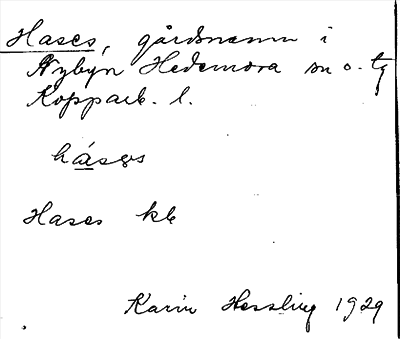 Hases, gårdsnamn i
Nybyn Hedemora sn o. tg
Kopparb. l.
hásəs
Hases kb
Karin Hessling 1929